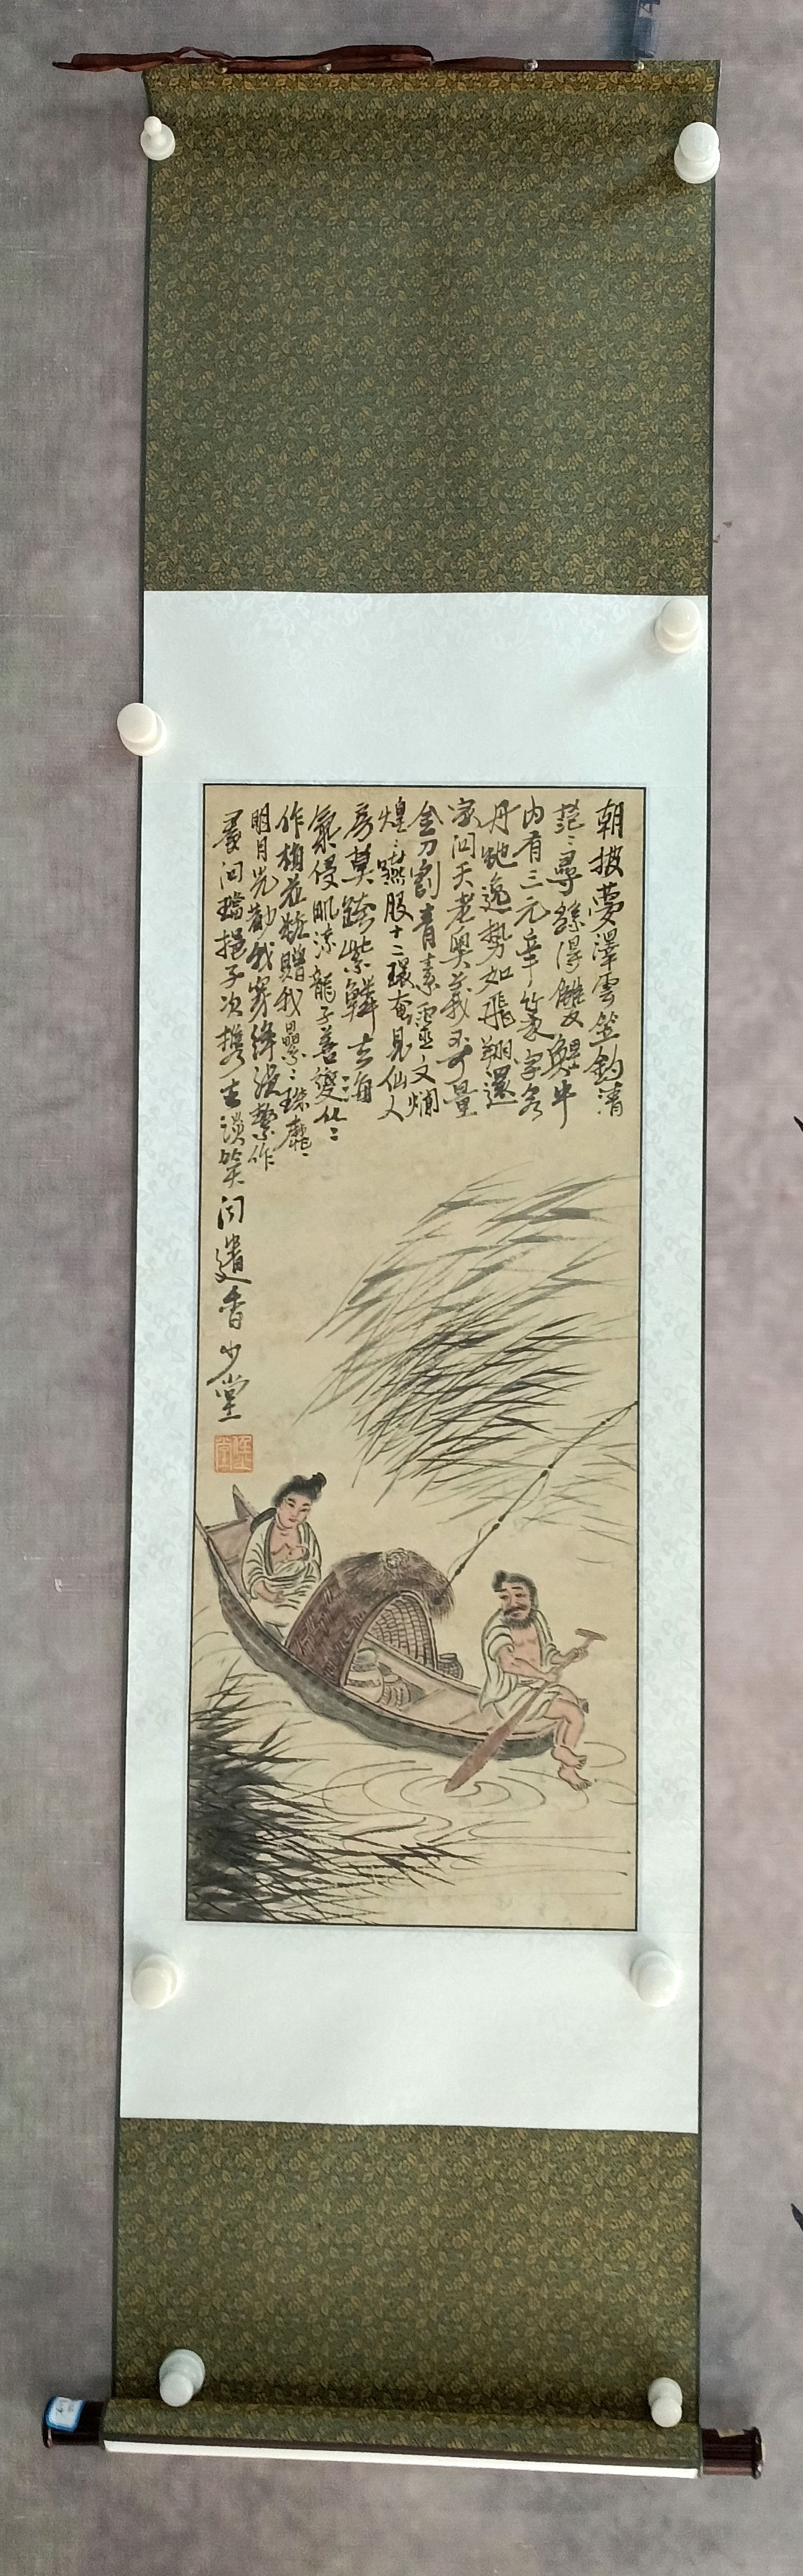 朝披夢澤雲笠釣清
茫〻尋絲得雙鯉中
內有三元章篆字若
丹虵逸勢如飛翔還
家問天老奧義不可量
金刀割青素靈文爛
煌〻嚥服十二環奄見仙人
房莫跨紫鱗去海
氣侵肌涼龍子善變化〻
作梅花妝贈我累〻珠靡〻
明月光勸我穿絳縷繫作
裙間璫挹子次攜去談笑聞遺香少堂